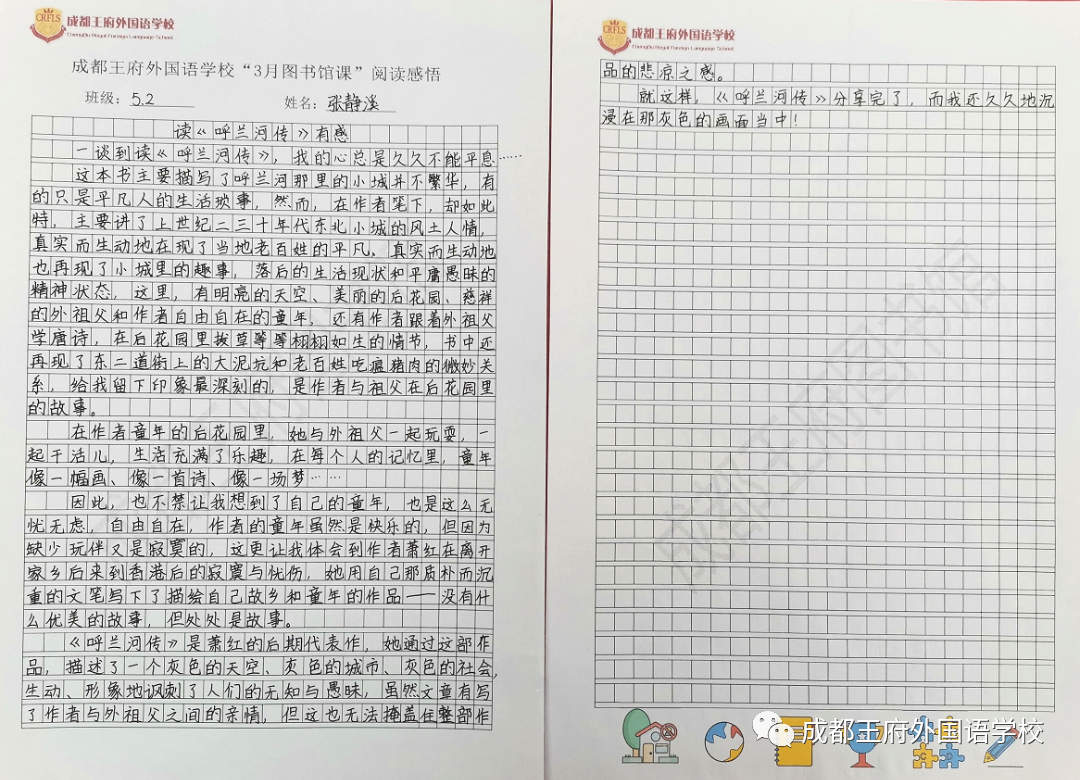 CRFLS
成都王府外国语学校
ChengDu Royal Foreign Language School
成都王府外国语学校“3月图书馆课”阅读感悟
班级：5.2 姓名：张静溪
读《呼兰河传》有感
一谈到读《呼兰河传》，我的心总是久久不能平息……
这本书主要描写了呼兰河那里的小城并不繁华，有
的只是平凡人的生活琐事，然而，在作者笔下，却如此
特，主要讲了上世纪二三十年代东北小城的风土人情，
真实而生动地在现了当地老百姓的平凡，真实而生动地
也再现了小城里的趣事，落后的生活现状和平庸愚昧的
精神状态，这里，有明亮的天空、美丽的后花园、慈祥
的外祖父和作者自由自在的童年，还有作者跟着外祖父
学唐诗，在后花园里拔草等等栩栩如生的情节，书中还
再现了东二道街上的大泥坑和老百姓吃瘟猪肉的微妙关
系，给我留下印象最深刻的，是作者与祖父在后花园里
的故事。
在作者童年的后花园里，她与外祖父一起玩耍，一
起干活儿，生活充满了乐趣，在每个人的记忆里，童年
像一幅画、像一首诗、像一场梦……
因此，也不禁让我想到了自己的童年，也是这么无
忧无虑，自由自在，作者的童年虽然是快乐的，但因为
缺少玩伴又是寂寞的，这更让我体会到作者萧红在离开
家乡后来到香港后的寂寞与忧伤，她用自己那质朴而沉
重的文笔写下了描绘自己故乡和童年的作品——没有什
么优美的故事，但处处是故事。
《呼兰河传》是萧红的后期代表作，她通过这部作
品，描述了一个灰色的天空、灰色的城市、灰色的社会，
生动、形象地讽刺了人们的无知与愚昧，虽然文章有写
了作者与外祖父之间的亲情，但这也无法掩盖住整部作
CRFLS
成都王府外国语学校
ChengDu Royal Foreign Language School
品的悲凉之感。
就这样，《呼兰河传》分享完了，而我还久久地沉
浸在那灰色的画面当中！
成都王府图书馆
成都王府外国语学校